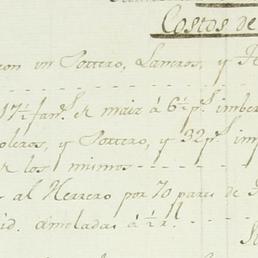 Costos de
con un Potrero, Laneros, y Pe
17½ fan.s de maiz á 6½ p.s imbe
oleros, y Potrero, y 32 p.s im
los mismos
al Herrero por 70 pares de
id. ameladas á ½ r.l